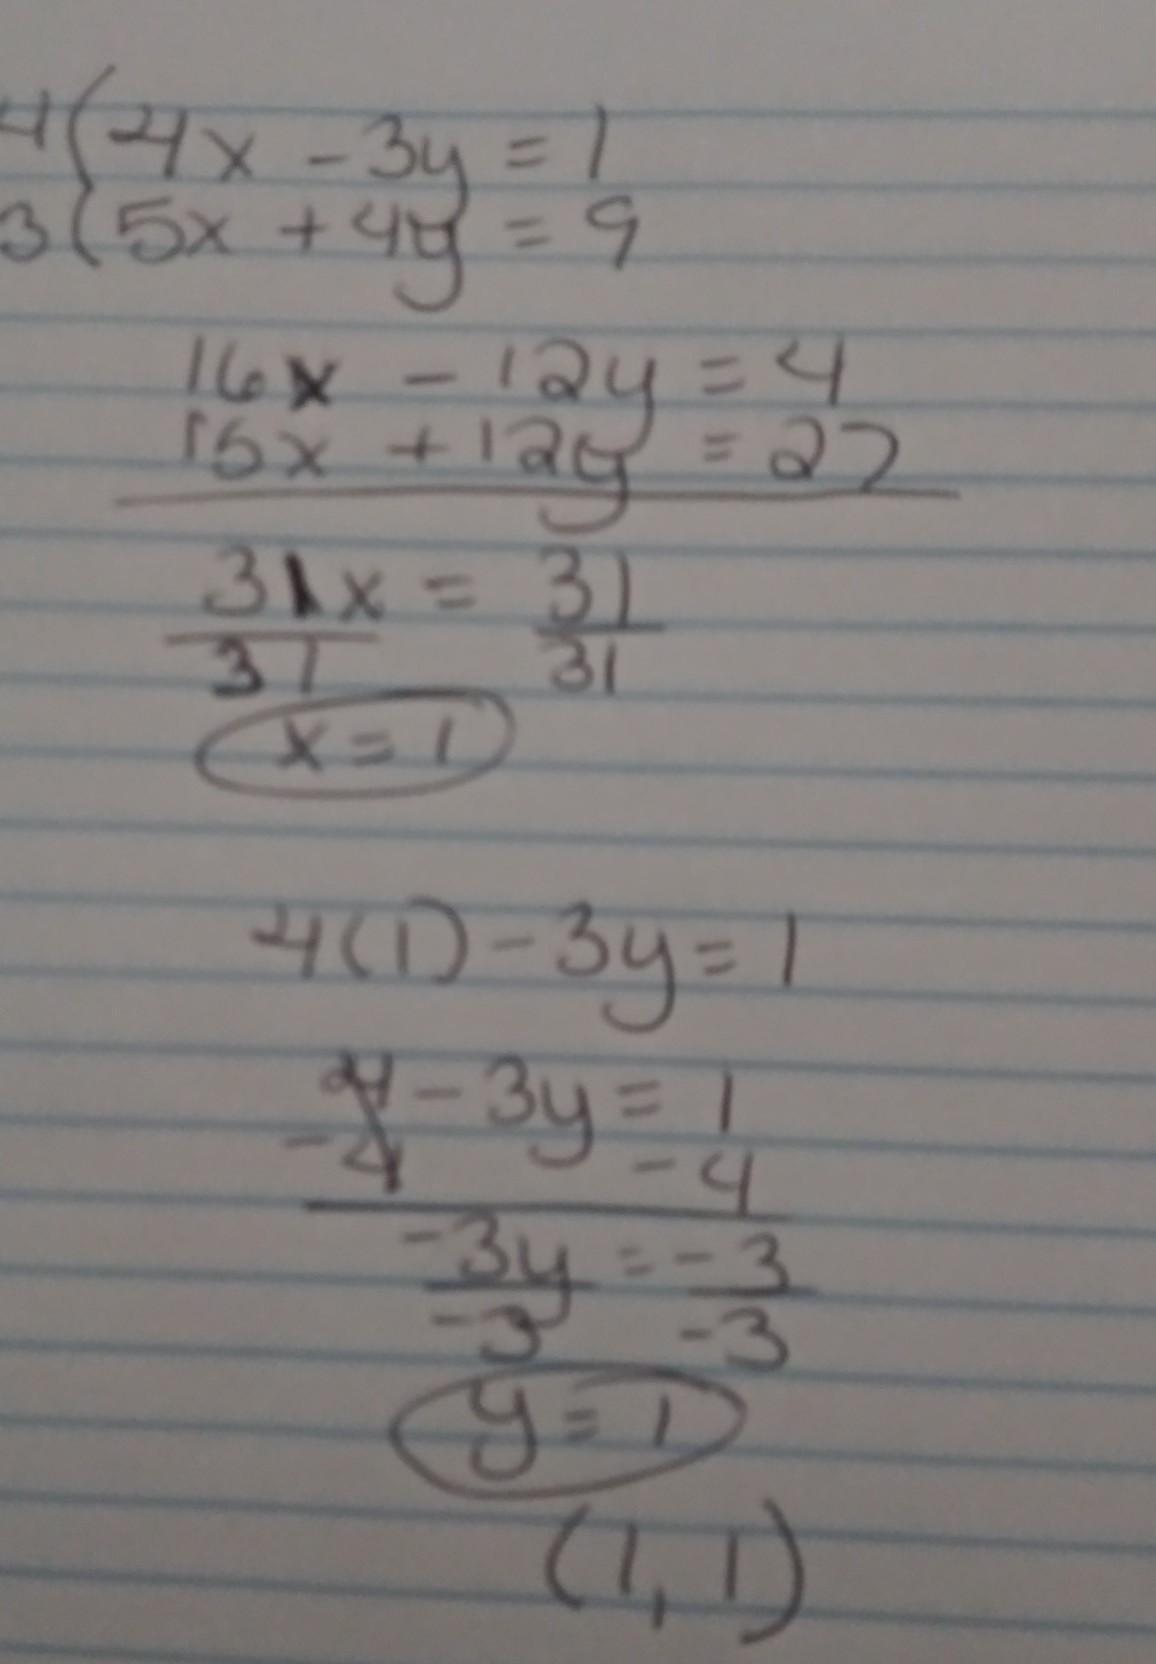 4(4x - 3y = 1
3(5x + 4y = 9
16x - 12y = 4
15x + 12y = 27
31x = 31
31 31
x = 1
4(1) - 3y = 1
4 - 3y = 1
-4 -4
-3y = -3
-3 -3
y = 1
(1, 1)